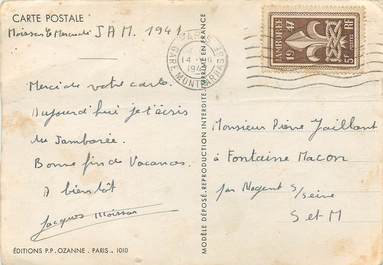 CARTE POSTALE
Moisson JAM. 1947
PARIS
GARE MONTPARNASSE
JAMBOREE
1947
RF
POSTES
5F
Merci de votre carte.
Aujourd'hui je t'écris
du Jamborée.
Bonne fin de Vacances.
A bientôt
Jacques
Monsieur Pierre Jaillant
à Fontaine Macon
par Nogent s/ Seine
S et M
ÉDITIONS P.P. OZANNE . PARIS _ 1010
MODÈLE DÉPOSÉ. REPRODUCTION INTERDITE. IMPRIMÉ EN FRANCE